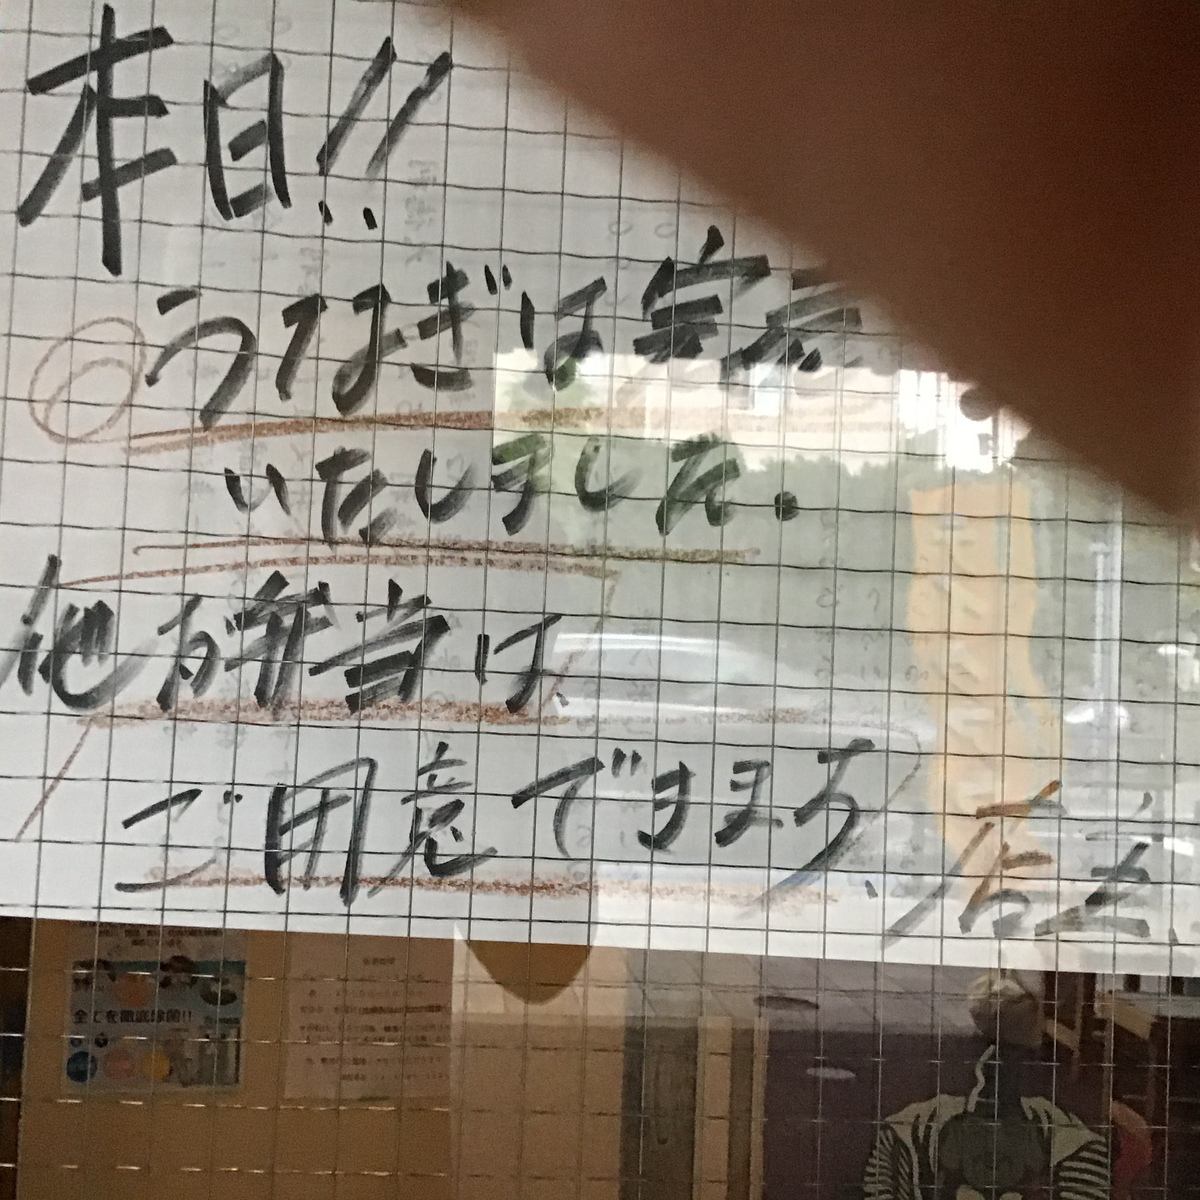 本日!!
うなぎは完売
いたしました.
他お弁当は、
ご用意できます、
店主
全てを徹底除菌!!